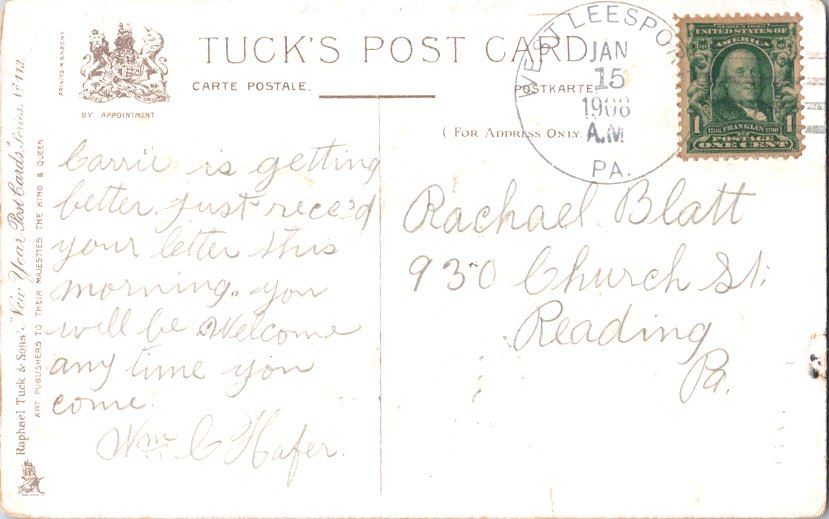 TUCK'S POST CARD
CARTE POSTALE.
POSTKARTE
BY APPOINTMENT
PRINTED IN SAXONY
(FOR ADDRESS ONLY.
WEST LEESPOR
JAN
15
1908
A.M
PA.
SERIES 1902
UNITED STATES OF
AMERICA
1706 FRANKLIN 1790
1 1
POSTAGE
ONE CENT
Raphael Tuck & Sons' "New Year Post Cards" Series. No 112.
ART PUBLISHERS TO THEIR MAJESTIES THE KING & QUEEN
Carrie is getting
better. Just rece'd
your letter this
morning. you
will be Welcome
any time you
come.
Wm C Hafer.
Rachael Blatt
930 Church St.
Reading
Pa.